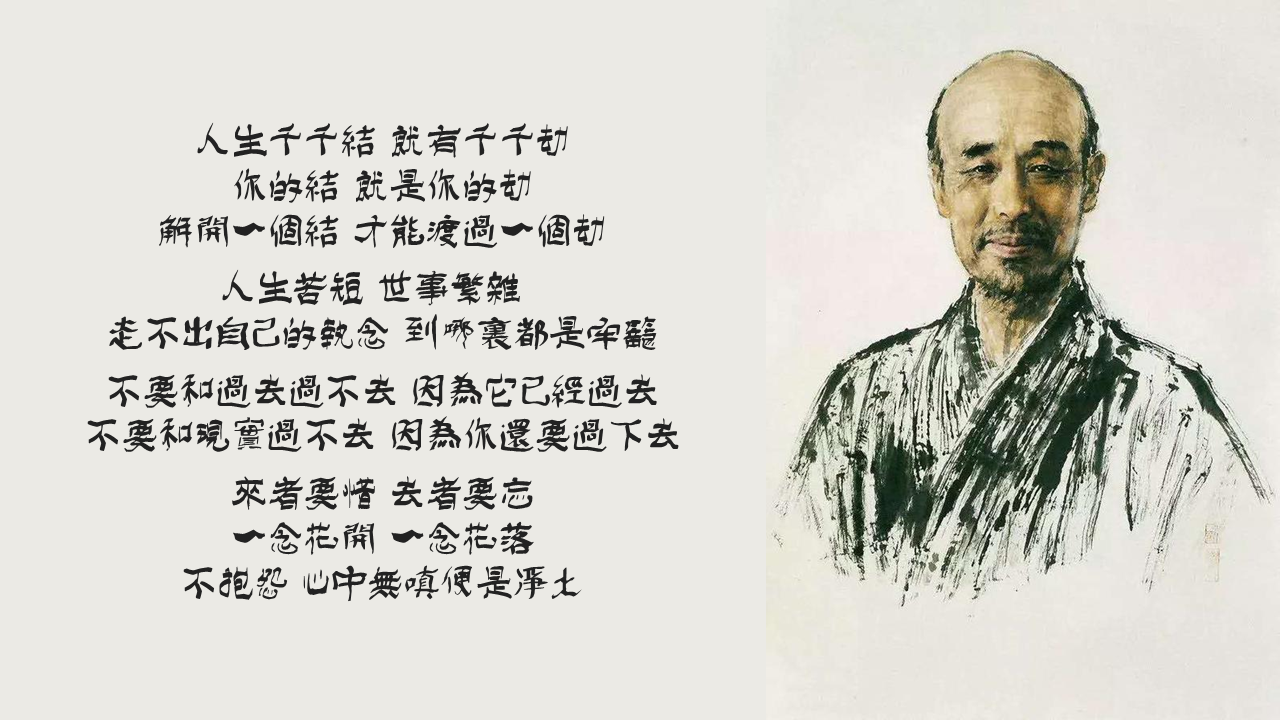 人生千千結 就有千千劫
你的結 就是你的劫
解開一個結 才能渡過一個劫
人生苦短 世事繁雜
走不出自己的執念 到哪裏都是牢籠
不要和過去過不去 因為它已經過去
不要和現實過不去 因為你還要過下去
來者要惜 去者要忘
一念花開 一念花落
不抱怨 心中無嗔便是淨土